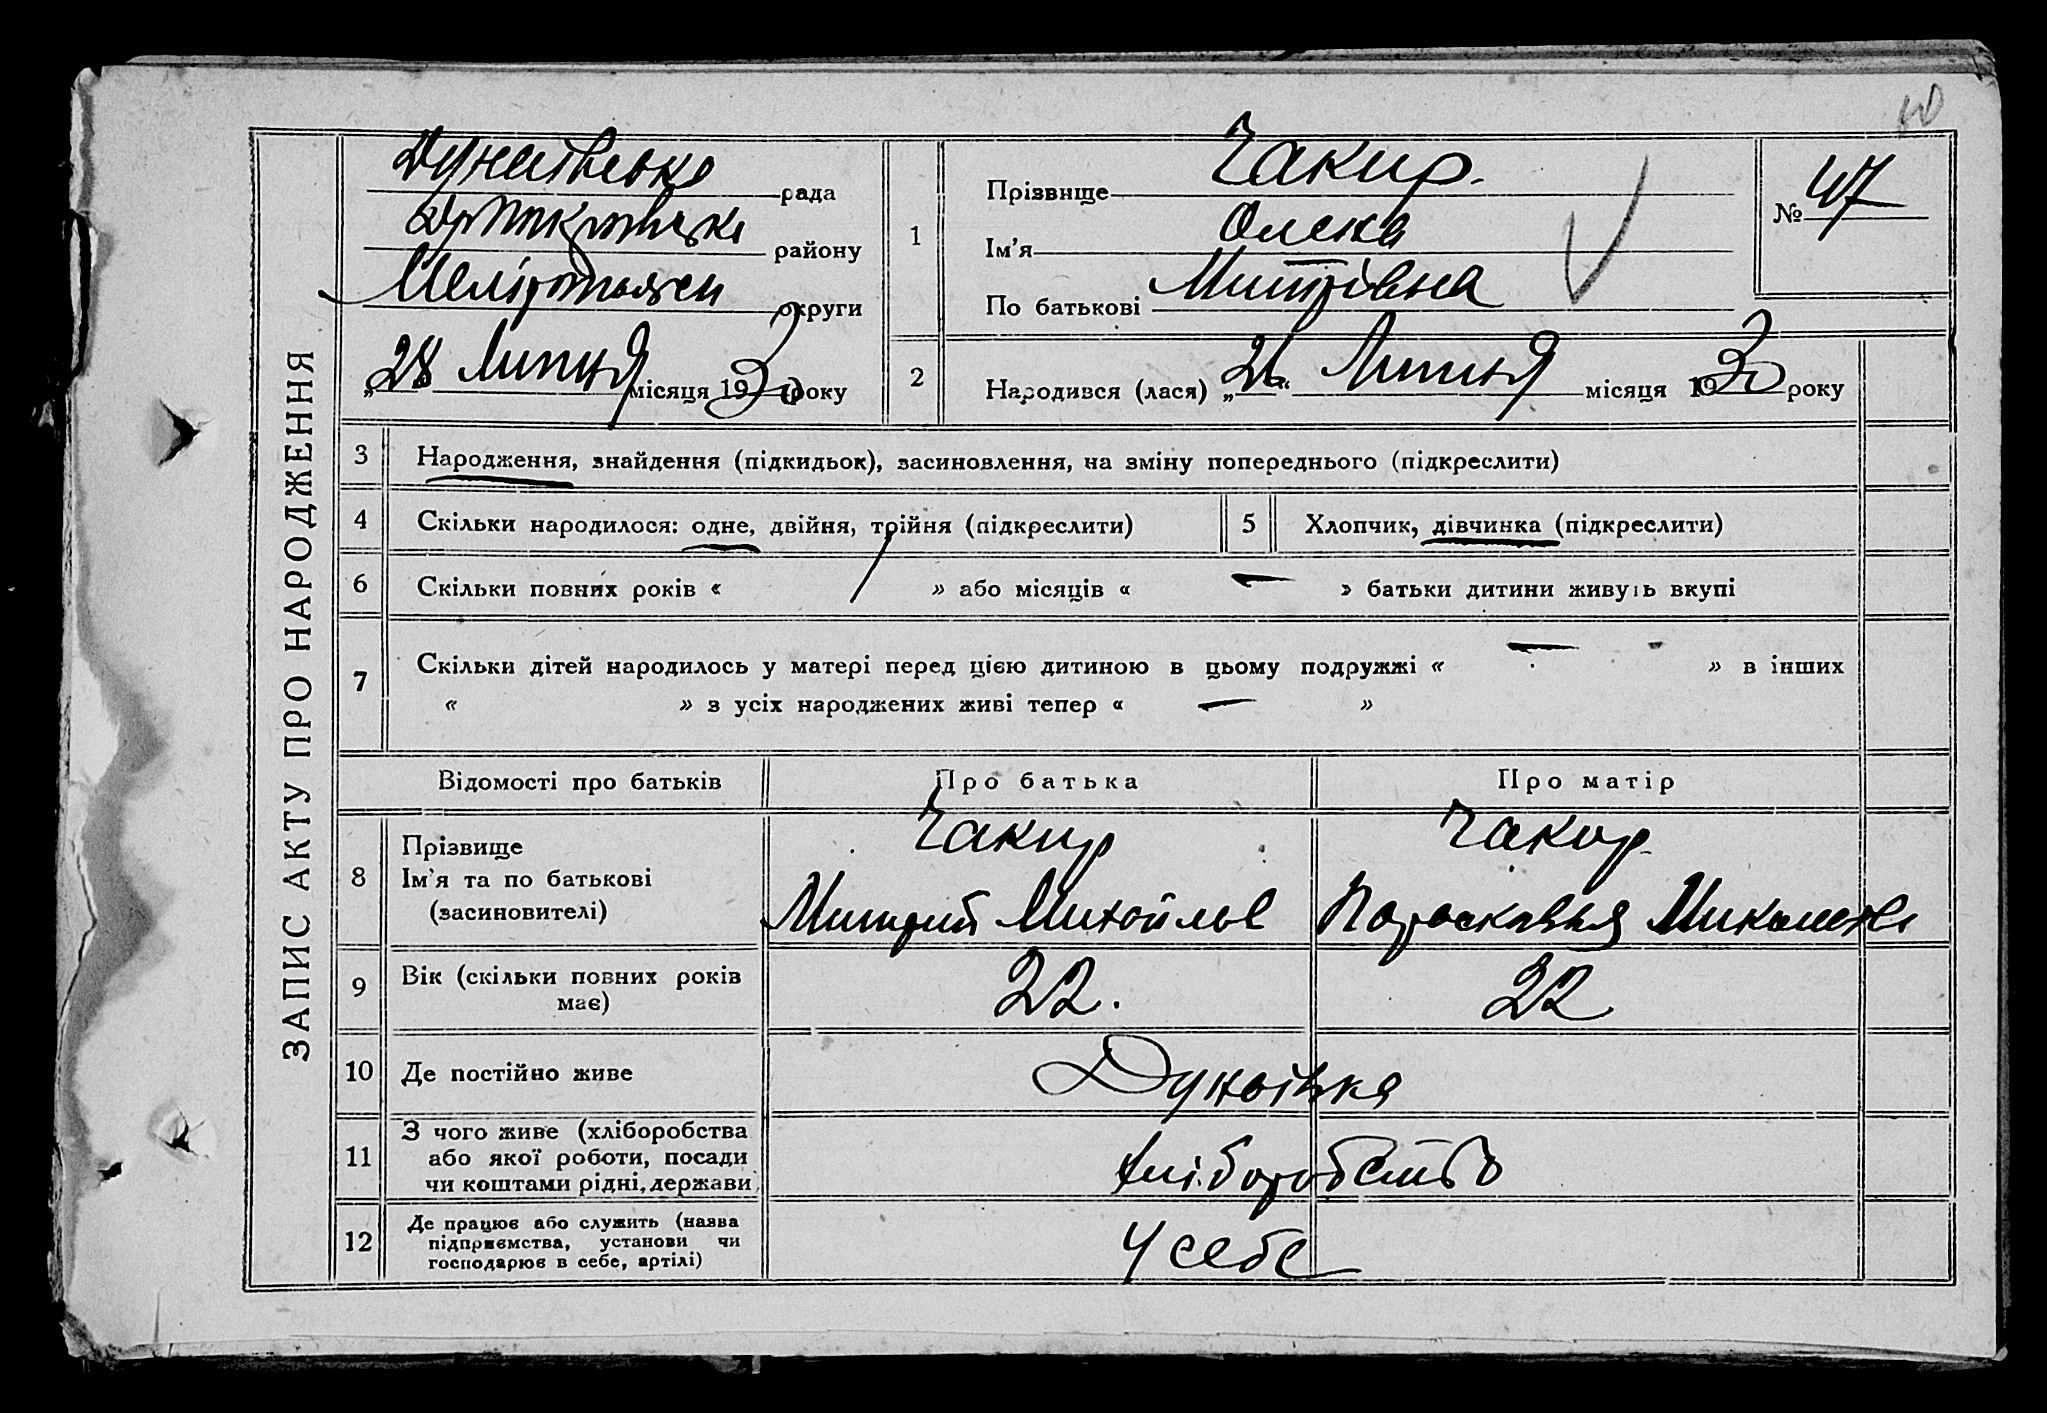 40
ЗАПИС АКТУ ПРО НАРОДЖЕННЯ
Дунаївська рада
району
округи
„28 Липця місяця 1930 року
1
Прізвище Чакир.
Ім'я Олена
По батькові Митрівна
№ 47
2
Народився (лася) „ “ Липця місяця 1930 року
3 Народження, знайдення (підкидьок), засиновлення, на зміну попереднього (підкреслити)
4 Скільки народилося: одне, двійня, трійня (підкреслити)
5 Хлопчик, дівчинка (підкреслити)
6 Скільки повних років « / » або місяців « — » батьки дитини живуть вкупі
7 Скільки дітей народилось у матері перед цією дитиною в цьому подружжі « — » в інших
« » з усіх народжених живі тепер « — »
Відомості про батьків Про батька Про матір
8 Прізвище
Ім'я та по батькові
(засиновителі)
Чакир
Митрий Михойлов
Чакир
Пороскавья
9 Вік (скільки повних років
має)
22.
22
10 Де постійно живе Дунаівка
11 З чого живе (хліборобства
або якої роботи, посади
чи коштами рідні, держави)
хліборобство
12 Де працює або служить (назва
підприємства, установи чи
господарює в себе, артілі)
У себе